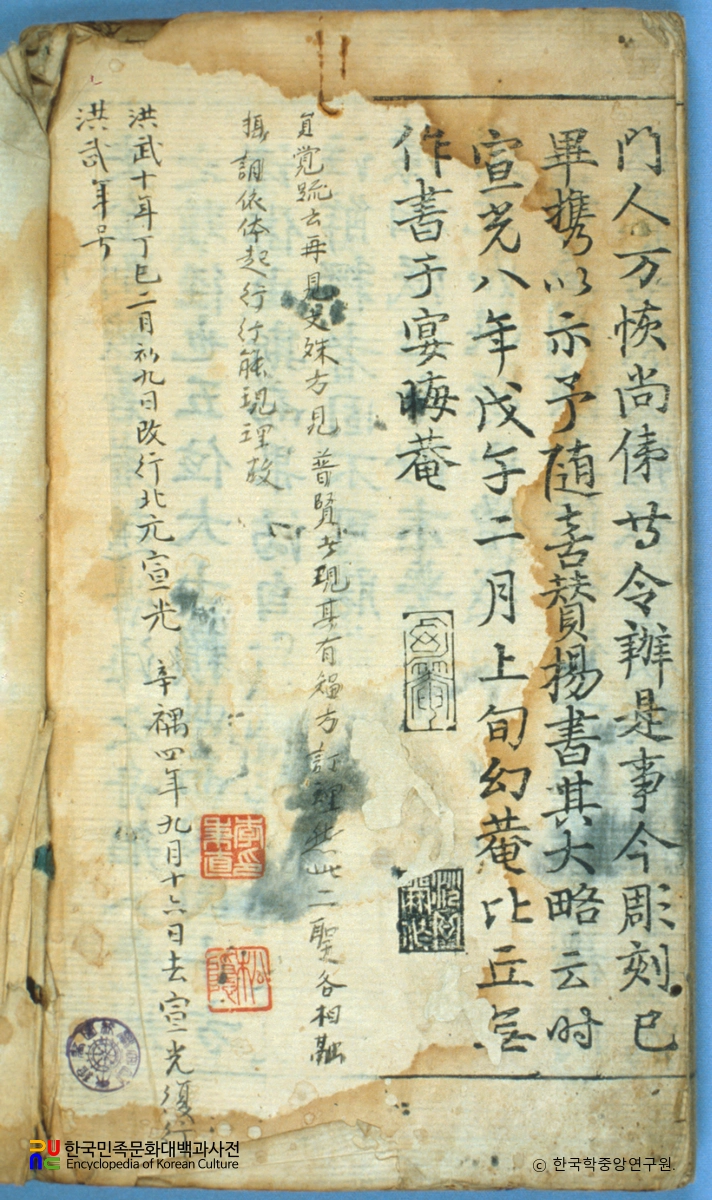 門人万恢尚偉等令辦是事今彫刻已
畢携以示予随喜賛揚書其大略云时
宣光八年戊午二月上旬幻菴比丘
作書于宴晦菴
覚䟽云再見文殊方見普賢者現其有方訂理然此二聖各相融
依体起行行能現理故
洪武十年丁巳二月初九日改行北元宣光 辛禑四年九月十六日去宣光復行
洪武年号
松隱
한국민족문화대백과사전
Encyclopedia of Korean Culture
ⓒ 한국학중앙연구원